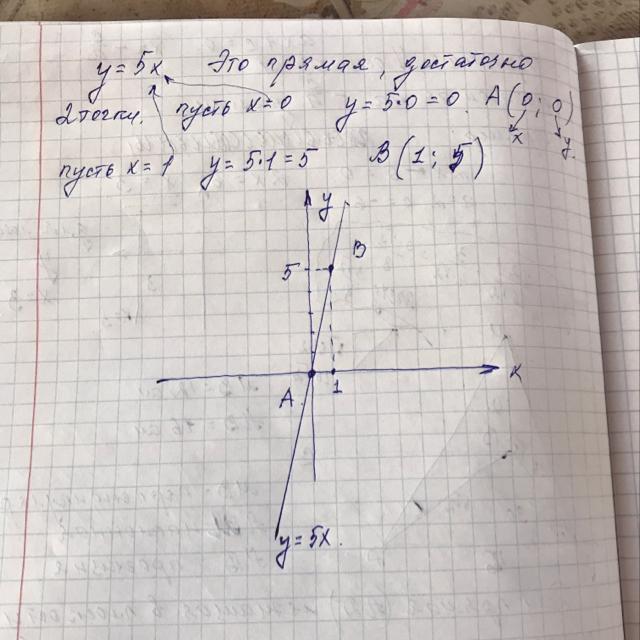 y = 5x Это прямая, достаточно
2 точки, пусть x = 0 y = 5·0 = 0. A (0; 0)
x y
пусть x = 1 y = 5·1 = 5 B (1; 5)
y
B
5
A 1 x
y = 5x.